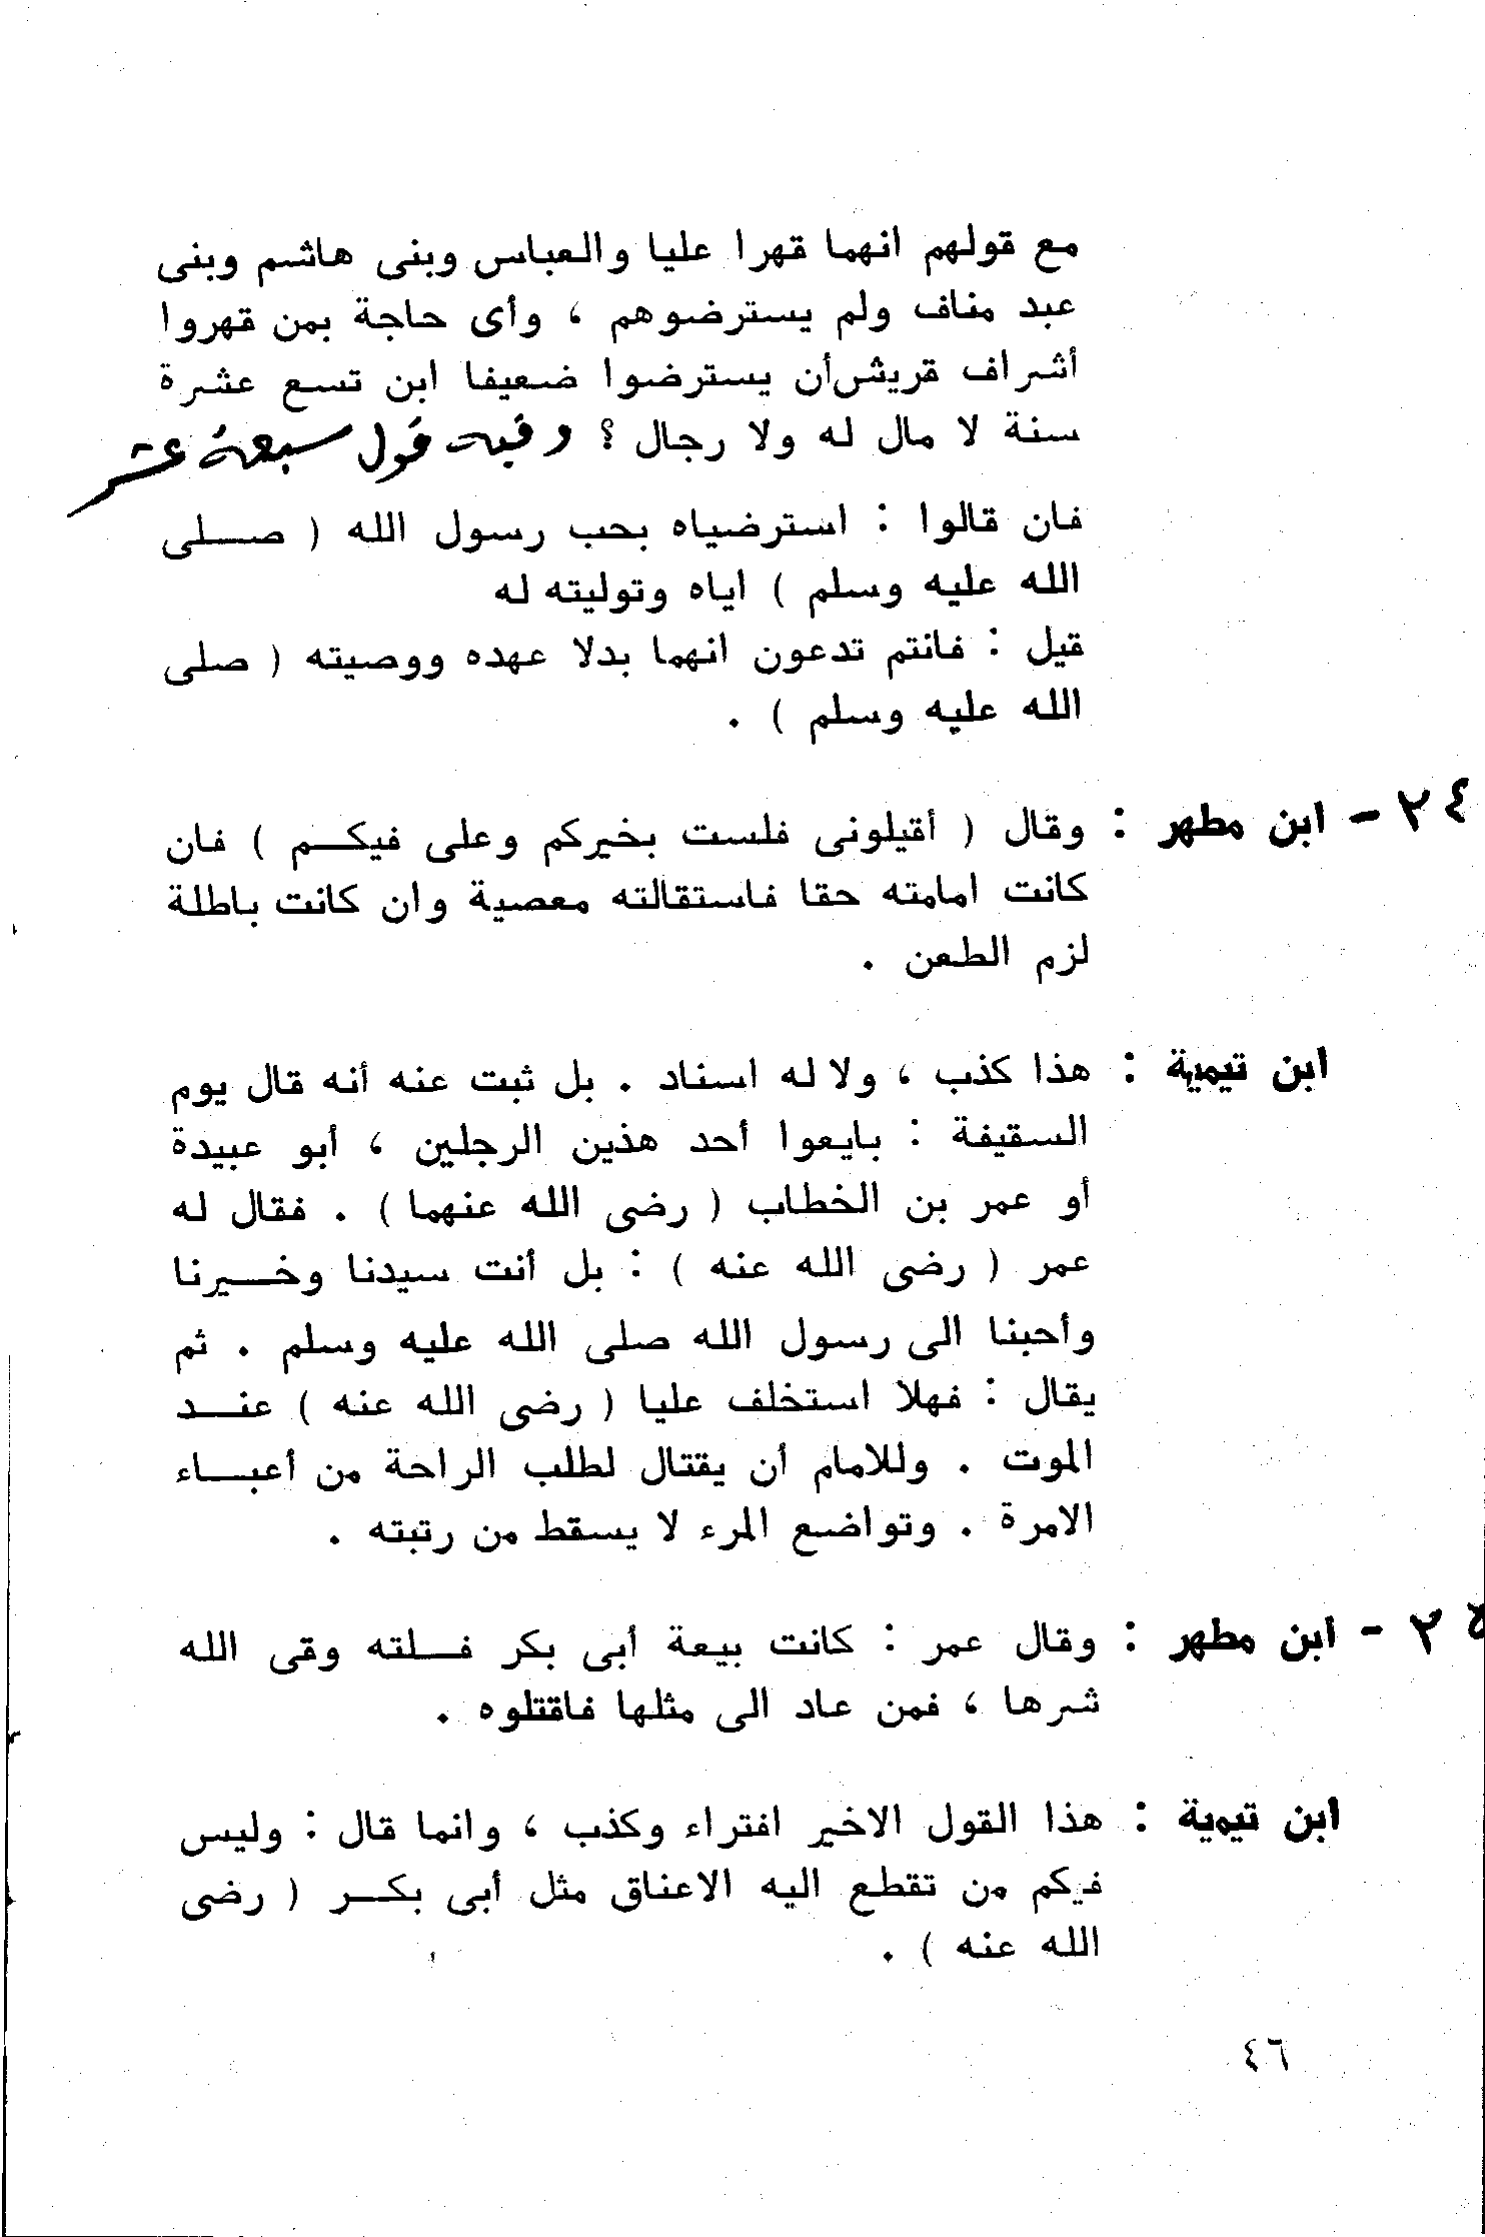 مع قولهم انهما قهرا عليا والعباس وبنى هاشم وبنى
عبد مناف ولم يسترضوهم ، وأى حاجة بمن قهروا
أشراف قريش أن يسترضوا ضعيفا ابن تسع عشرة
سنة لا مال له ولا رجال ؟ وفيه قول سبعة عشر
فان قالوا : استرضياه بحب رسول الله ( صلى
الله عليه وسلم ) اياه وتوليته له
قيل : فانتم تدعون انهما بدلا عهده ووصيته ( صلى
الله عليه وسلم ) .
٢٤ - ابن مطهر : وقال ( أقيلونى فلست بخيركم وعلى فيكم ) فان
كانت امامته حقا فاستقالته معصية وان كانت باطلة
لزم الطعن .
ابن تيمية : هذا كذب ، ولا له اسناد . بل ثبت عنه أنه قال يوم
السقيفة : بايعوا أحد هذين الرجلين ، أبو عبيدة
أو عمر بن الخطاب ( رضى الله عنهما ) . فقال له
عمر ( رضى الله عنه ) : بل أنت سيدنا وخيرنا
وأحبنا الى رسول الله صلى الله عليه وسلم . ثم
يقال : فهلا استخلف عليا ( رضى الله عنه ) عند
الموت . وللامام أن يقتال لطلب الراحة من أعباء
الامرة . وتواضع المرء لا يسقط من رتبته .
٢٥ - ابن مطهر : وقال عمر : كانت بيعة أبى بكر فلته وقى الله
شرها ، فمن عاد الى مثلها فاقتلوه .
ابن تيمية : هذا القول الاخير افتراء وكذب ، وانما قال : وليس
فيكم من تقطع اليه الاعناق مثل أبى بكر ( رضى
الله عنه ) .
٤٦